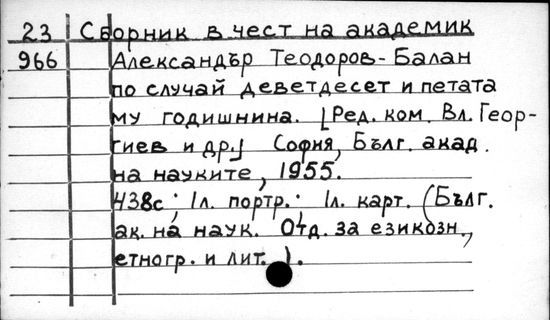 23 Сборник в чест на академик
966 Александър Теодоров-Балан
по случай деветдесет и петата
му годишнина. [Ред. ком. Вл. Геор-
гиев и др.] София, Бълг. акад.
на науките, 1955.
438с; 1л. портр.; 1л. карт. (Бълг.
ак. на наук. Отд. за езикозн.,
етногр. и лит.).